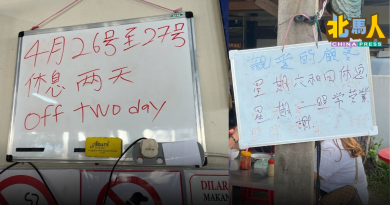 4月26号至27号
休息 两天
Off two day
北馬人
CHINA PRESS
親爱的顧客
星期六和日休息
星期一照常营業
謝
DILAR
MAKAN